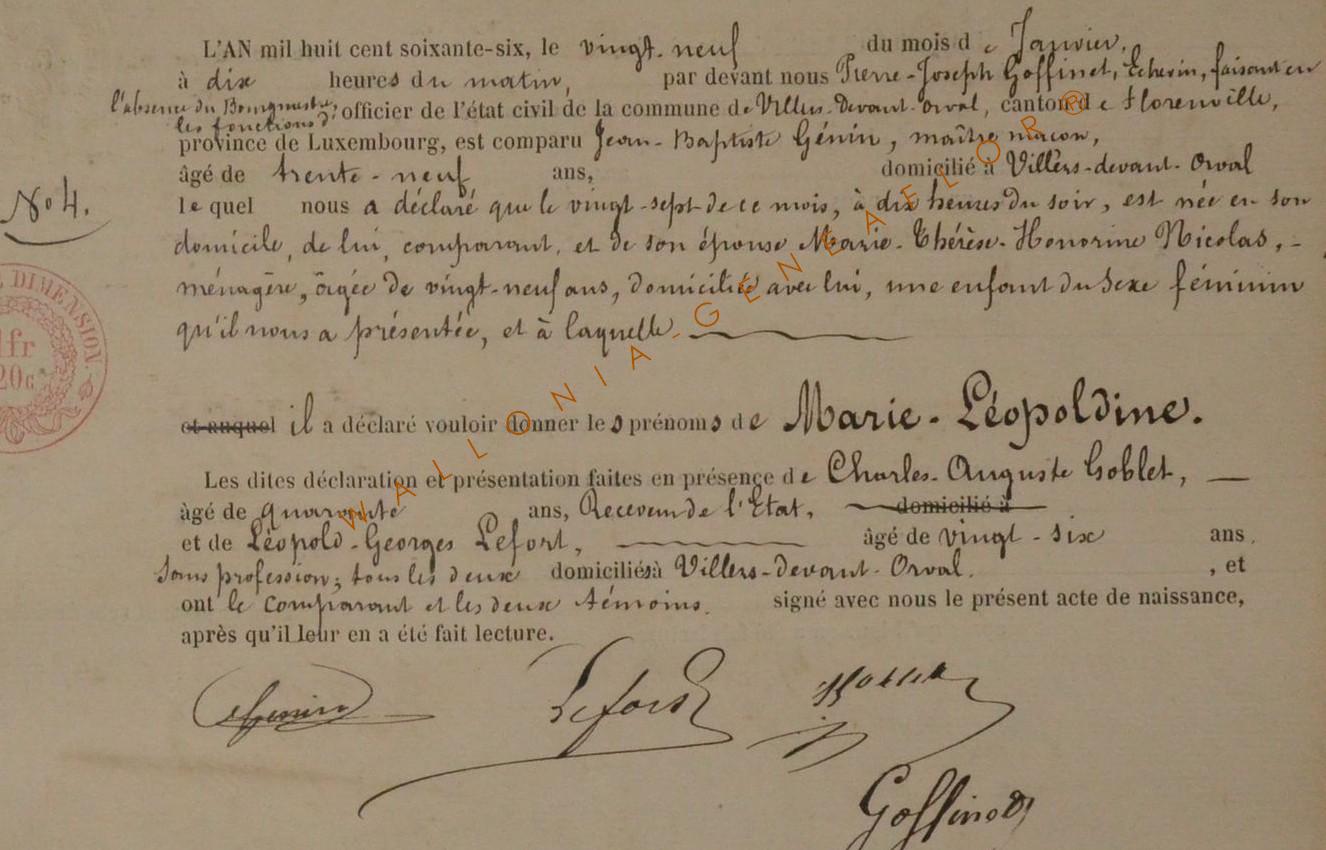 L'AN mil huit cent soixante-six, le vingt-neuf du mois de Janvier,
à dix heures du matin, par devant nous Pierre-Joseph Goffinet, Echevin, faisant en
l'absence du Bourgmestre, les fonctions d'officier de l'état civil de la commune de Villers-devant-Orval, canton de Florenville,
province de Luxembourg, est comparu Jean-Baptiste Génin, maître maçon,
âgé de trente-neuf ans, domicilié à Villers-devant-Orval
lequel nous a déclaré que le vingt-sept de ce mois, à dix heures du soir, est née en son
domicile, de lui, comparant, et de son épouse Marie-Thérèse-Honorine Nicolas,
ménagère, âgée de vingt-neuf ans, domiciliée avec lui, une enfant du sexe féminin
qu'il nous a présentée, et à laquelle
et auquel il a déclaré vouloir donner les prénoms de Marie-Léopoldine.
Les dites déclaration et présentation faites en présence de Charles-Auguste Goblet,
âgé de quarante ans, Receveur de l'Etat, domicilié à
et de Léopold-Georges Lefort, âgé de vingt-six ans.
Sans profession; tous les deux domiciliés à Villers-devant-Orval. , et
ont le comparant et les deux témoins signé avec nous le présent acte de naissance,
après qu'il leur en a été fait lecture.
No 4.
E DIMENSION
1fr
20c
WALLONIA-GENEALOR®
Génin
Lefort
Goffinet